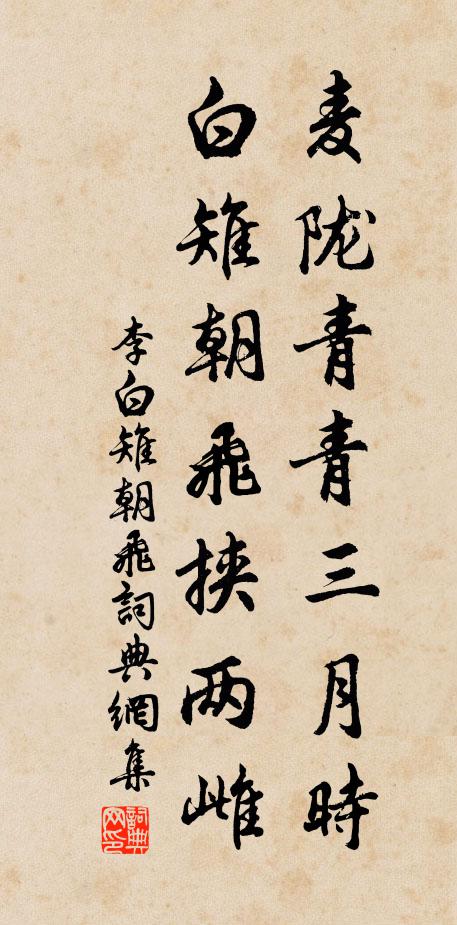 麦陇青青三月時
白雉朝飛挟两雌
李白雉朝飛詞典網集
詞典网印